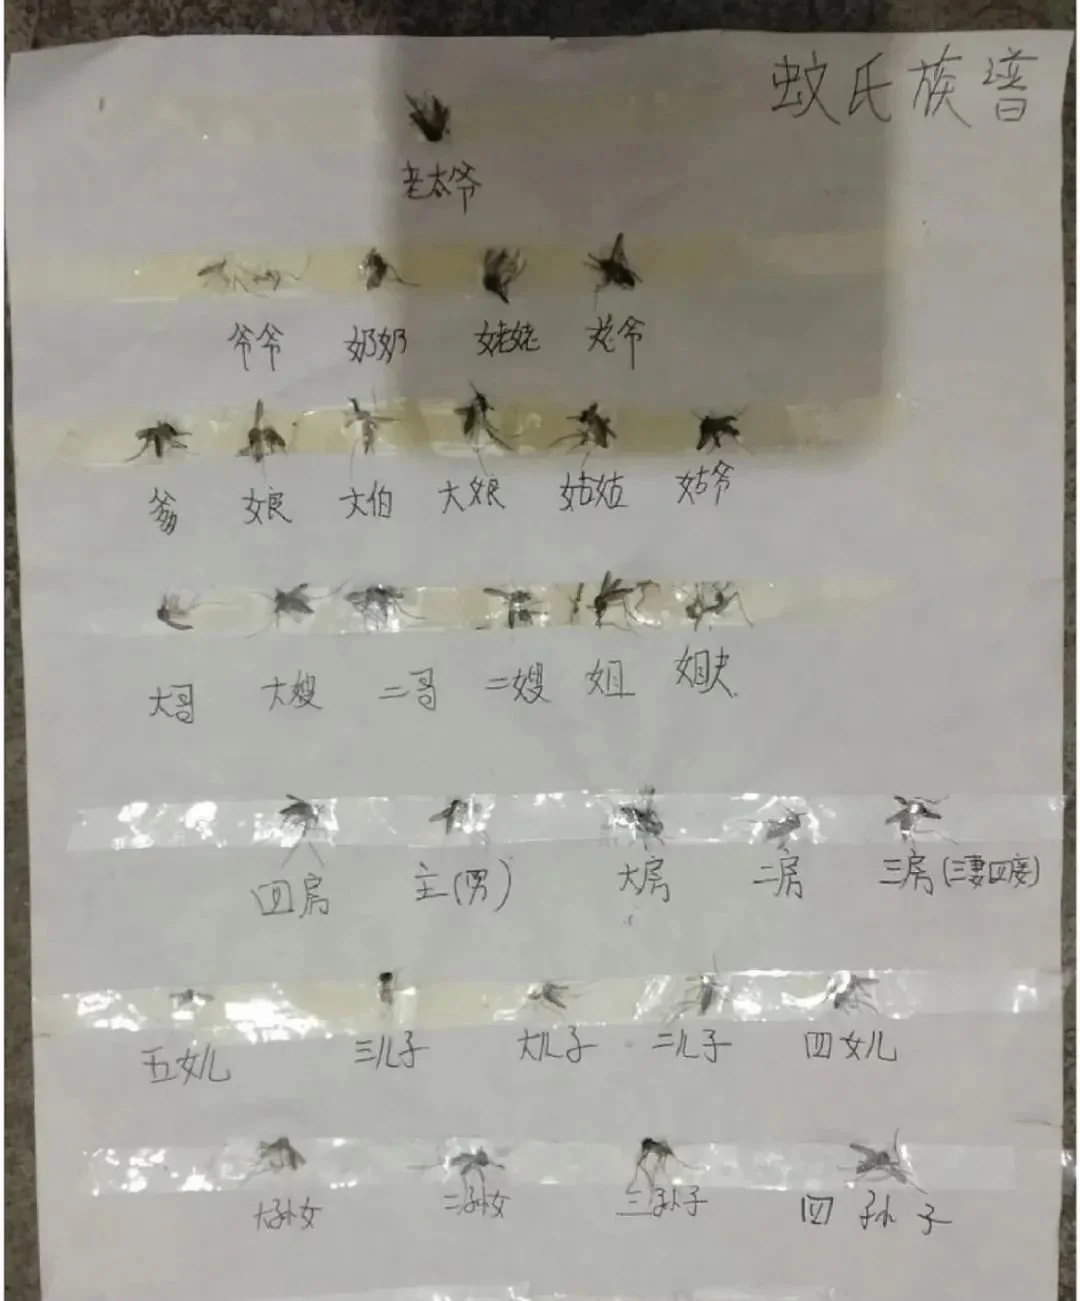 蚊氏族谱
老太爷
爷爷 奶奶 姥姥 姥爷
爹 娘 大伯 大娘 姑姑 姑爷
大哥 大嫂 二哥 二嫂 姐 姐夫
四房 主(男) 大房 二房 三房(三妻四妾)
五女儿 三儿子 大儿子 二儿子 四女儿
大孙女 二孙女 三孙子 四孙子